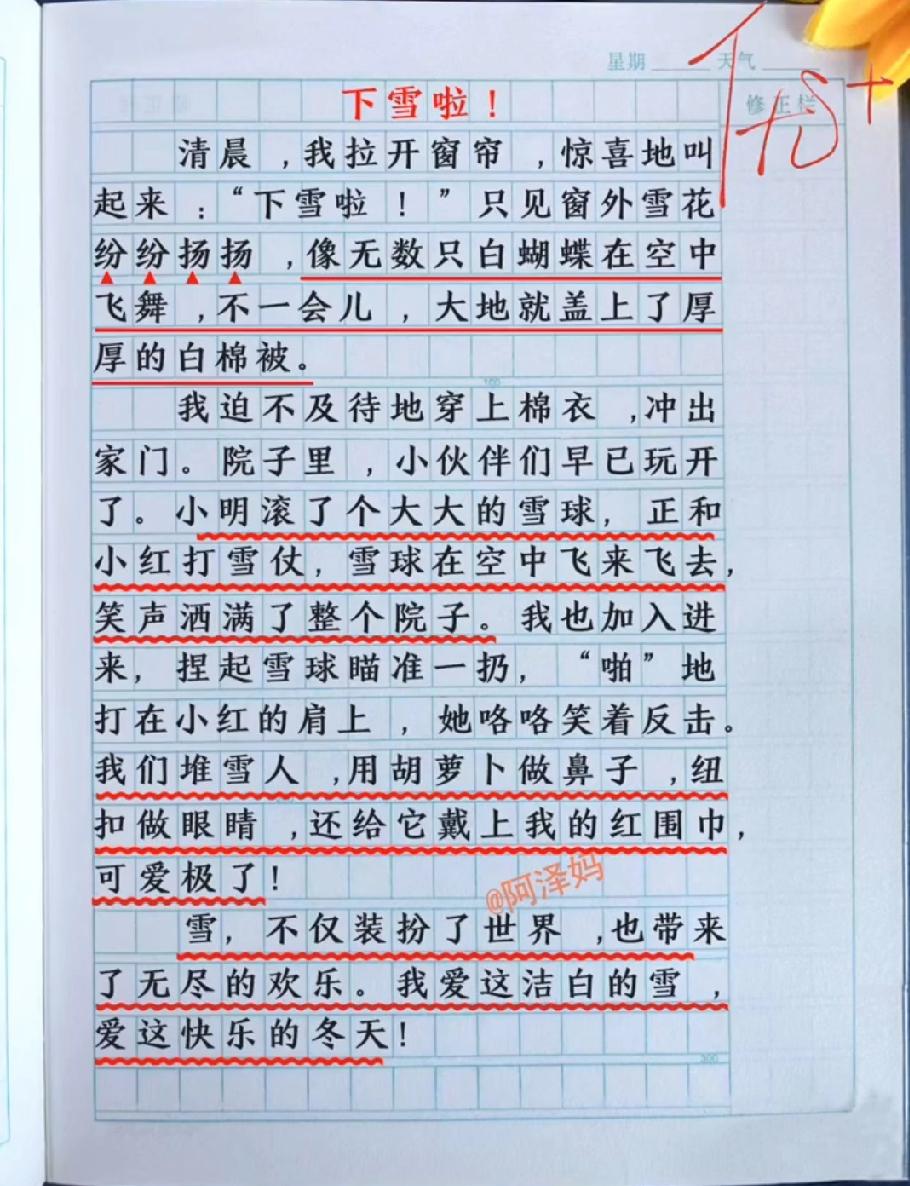 星期 天气
优+
修正栏
下雪啦！
清晨，我拉开窗帘，惊喜地叫
起来：“下雪啦！”只见窗外雪花
纷纷扬扬，像无数只白蝴蝶在空中
飞舞，不一会儿，大地就盖上了厚
厚的白棉被。
100
我迫不及待地穿上棉衣，冲出
家门。院子里，小伙伴们早已玩开
了。小明滚了个大大的雪球，正和
小红打雪仗，雪球在空中飞来飞去，
笑声洒满了整个院子。我也加入进
来，捏起雪球瞄准一扔，“啪”地
打在小红的肩上，她咯咯笑着反击。
我们堆雪人，用胡萝卜做鼻子，纽
扣做眼睛，还给它戴上我的红围巾，
可爱极了！
@阿泽妈
雪，不仅装扮了世界，也带来
了无尽的欢乐。我爱这洁白的雪，
爱这快乐的冬天！
300